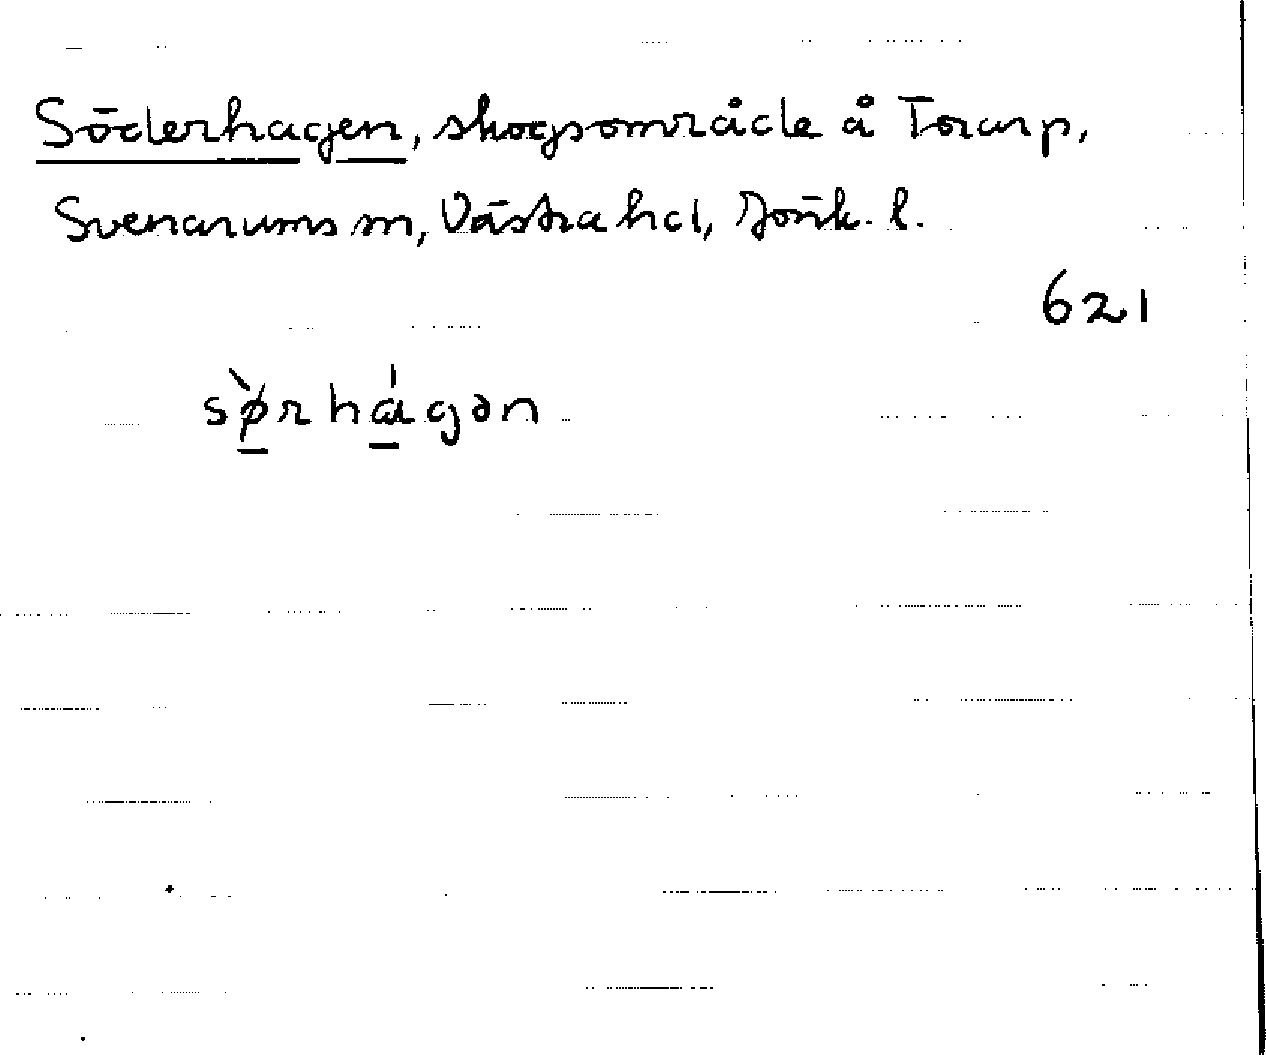 Söderhagen, skogsområde å Torarp,
Svenarums sn, Västra hd, Jönk. l.
621
sø̀rhágən